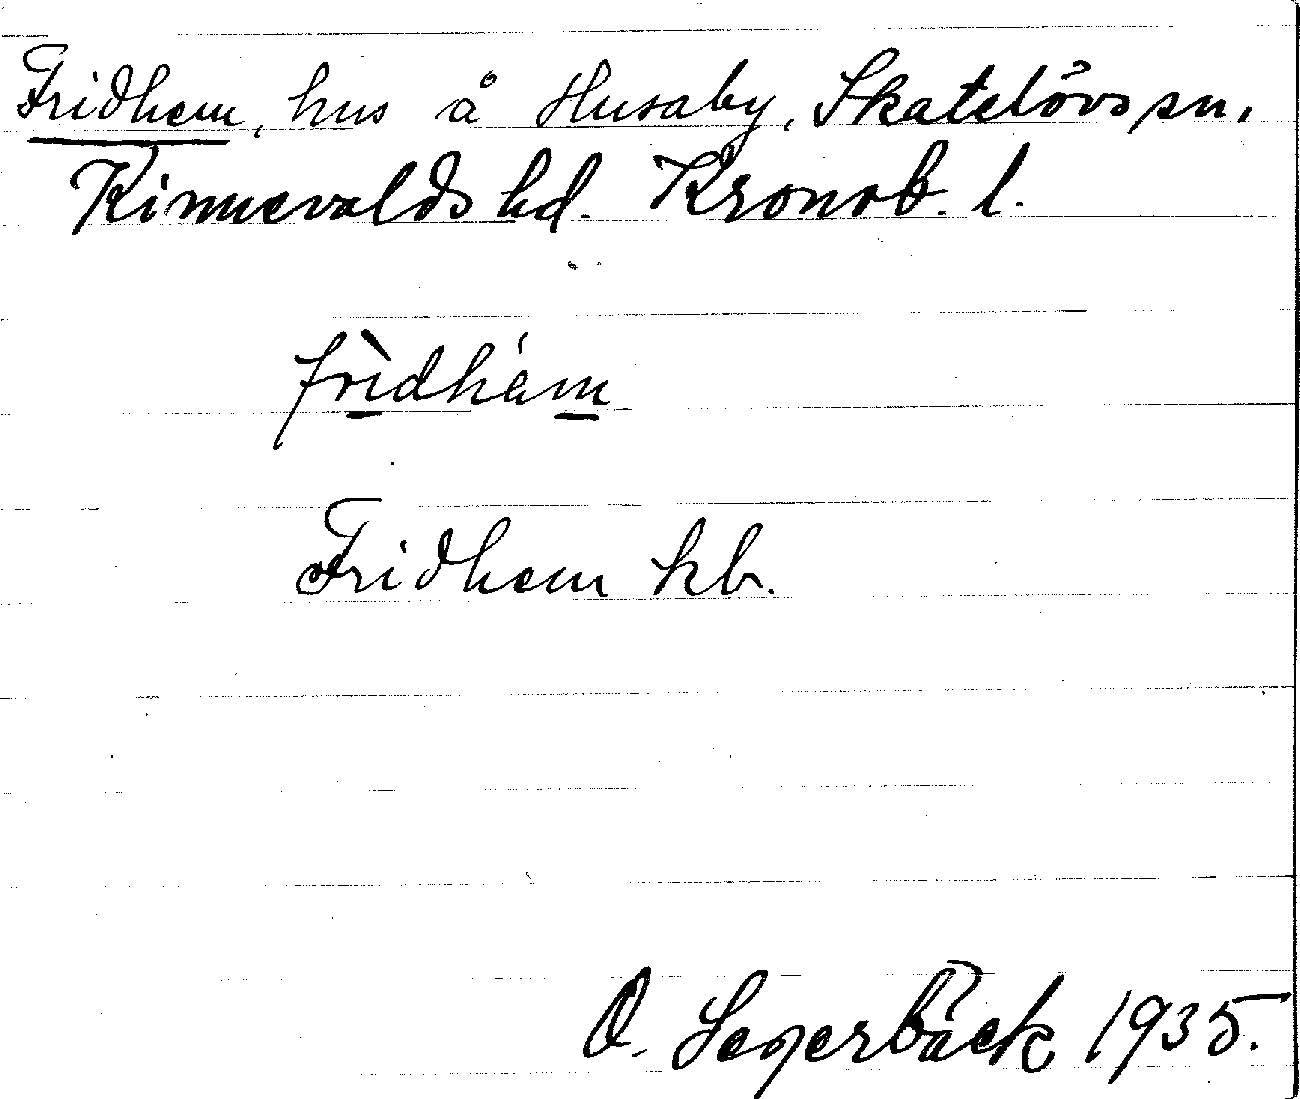 Fridhem, hus å Husaby, Skatelövs sn.
Kinnevalds hd. Kronob. l.
fri̠dhem̠
Fridhem kb.
O. Segerbäck 1935.